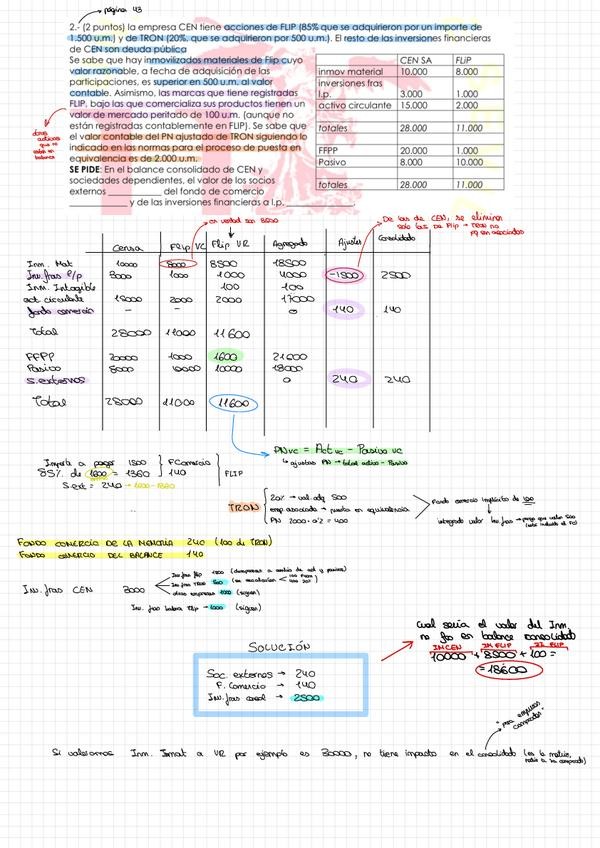 página 43
2.- (2 puntos) la empresa CEN tiene acciones de FLIP (85% que se adquirieron por un importe de
1.500 u.m.) y de TRON (20%, que se adquirieron por 500 u.m.). El resto de las inversiones financieras
de CEN son deuda pública
Se sabe que hay inmovilizados materiales de Flip cuyo
valor razonable, a fecha de adquisición de las
participaciones, es superior en 500 u.m. al valor
contable. Asimismo, las marcas que tiene registradas
FLIP, bajo las que comercializa sus productos tienen un
valor de mercado peritado de 100 u.m. (aunque no
están registradas contablemente en FLIP). Se sabe que
el valor contable del PN ajustado de TRON siguiendo lo
indicado en las normas para el proceso de puesta en
equivalencia es de 2.000 u.m.
SE PIDE: En el balance consolidado de CEN y
sociedades dependientes, el valor de los socios
externos ________ del fondo de comercio
________ y de las inversiones financieras a l.p. ________.
CEN SA FLIP
inmov material 10.000 8.000
inversiones fras
l.p. 3.000 1.000
activo circulante 15.000 2.000
totales 28.000 11.000
FFPP 20.000 1.000
Pasivo 8.000 10.000
totales 28.000 11.000
otros activos que no están en balance
en verdad son 8500
De las de CEN, se eliminan
solo las de Flip → TRON no
pq es asociados
Censa Flip VC Flip VR Agregado Ajustes Consolidado
Inm. Mat 10000 8000 8500 18500
Inv. fras l/p 3000 1000 1000 4000 -1500 2500
Inm. Intagible 100 100
act. circulante 15000 2000 2000 17000
fondo comercio - - 0 140 140
Total 28000 11000 11600
FFPP 20000 1000 1600 21600
Pasivo 8000 10000 10000 18000
S. externos 0 240 240
Total 28000 11000 11600
PNvc = Act vc - Pasivo vc
↳ ajustas PN → total activo - Pasivo
Importe a pagar 1500 F Comercio
85% de 1600 = 1360 140 FLIP
S.ext = 240 → 1600-1360
TRON
20% → val. adq 500
emp asociada → puesta en equivalencia
PN 2000 · 0'2 = 400
Fondo comercio implícito de 100
integrado valor inv fras → pongo que valen 500
(valor incluido el FC)
FONDO COMERCIO DE LA MEMORIA 240 (100 de TRON)
FONDO COMERCIO DEL BALANCE 140
Inv. fras CEN 3000
Inv. fras Flip 1500
Inv. fras TRON 500
otras empresas 1000 (siguen)
Inv. fras balance Flip → 1000 (siguen)
SOLUCIÓN
Soc. externos → 240
F. Comercio → 140
Inv. fras consol → 2500
cual sería el valor del Inm.
no fro en balance consolidado
IM CEN IM FLIP II FLIP
10000 + 8500 + 100 =
= 18600
Si valoramos Inm. Imat a VR por ejemplo es 30000, no tiene impacto en el consolidado (es la matriz,
nadie la ha comprado)
"para empresas
compradas"